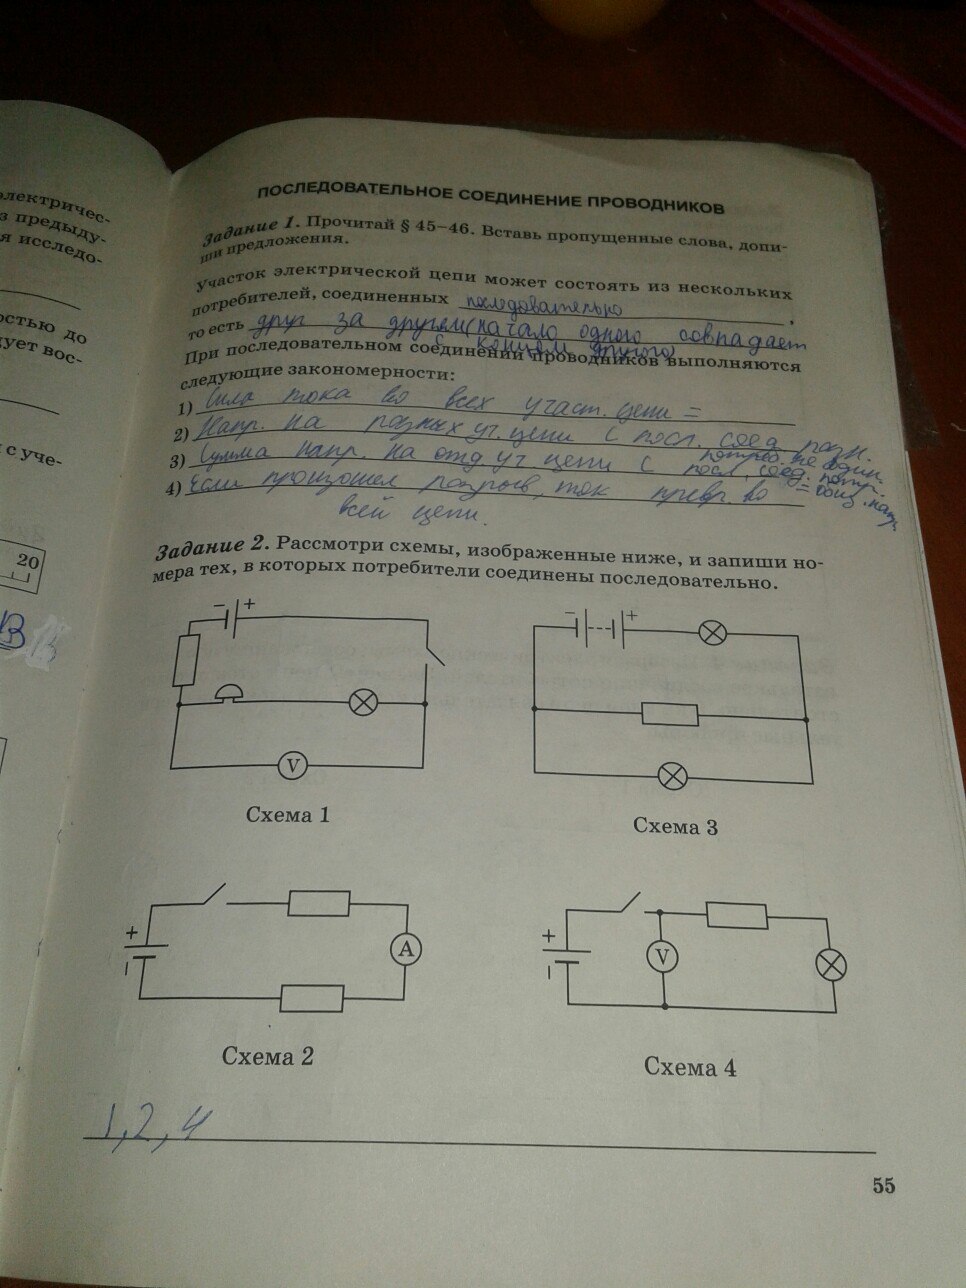 электричес-
з предыду-
я исследо-
остью до
дует вос-
с уче-
20
В
ПОСЛЕДОВАТЕЛЬНОЕ СОЕДИНЕНИЕ ПРОВОДНИКОВ
Задание 1. Прочитай § 45–46. Вставь пропущенные слова, допи-
ши предложения.
Участок электрической цепи может состоять из нескольких
потребителей, соединенных последовательно ,
то есть друг за другом (начало одного совпадает
с концом другого)
При последовательном соединении проводников выполняются
следующие закономерности:
1) Сила тока во всех участ. цепи =
2) Напр. на разных уч. цепи с посл. соед разн.
3) Сумма напр. на отд уч цепи с посл. соед. потр.
= общ. напр.
4) Если произошел разрыв, ток прерв. во
всей цепи.
Задание 2. Рассмотри схемы, изображенные ниже, и запиши но-
мера тех, в которых потребители соединены последовательно.
– +
V
Схема 1
– +
Схема 3
+
–
A
Схема 2
+
–
V
Схема 4
1, 2, 4
55